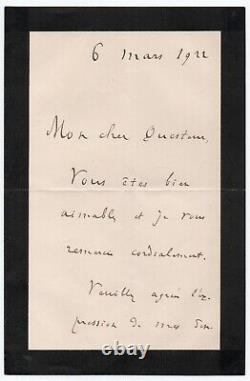 6 mars 1922
Mon cher Questeur,
Vous êtes bien
aimable et je vous
remercie cordialement.
Veuillez agréer l'ex-
pression de mes sen-
thebon.info